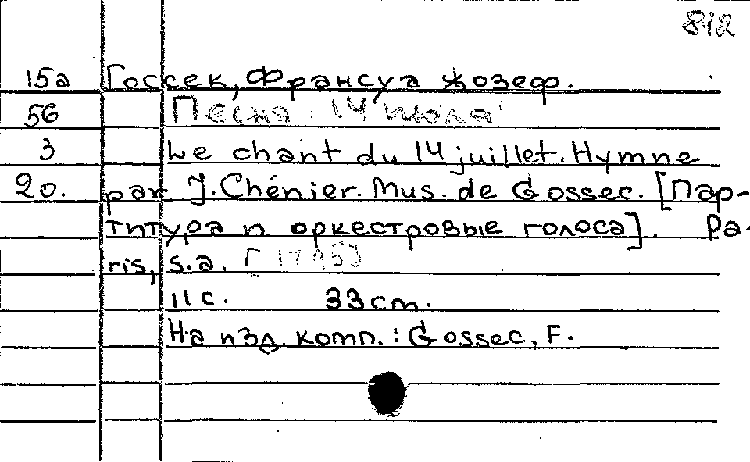 812
15а Госсек, Франсуа Жозеф.
56 Песня 14 июля
3 Le chant du 14 juillet. Hymne
20. par J. Chénier. Mus. de Gossec. [Пар-
титура и оркестровые голоса]. Pa-
ris, s.a.
11 с. 33 cm.
На изд. комп.: Gossec, F.